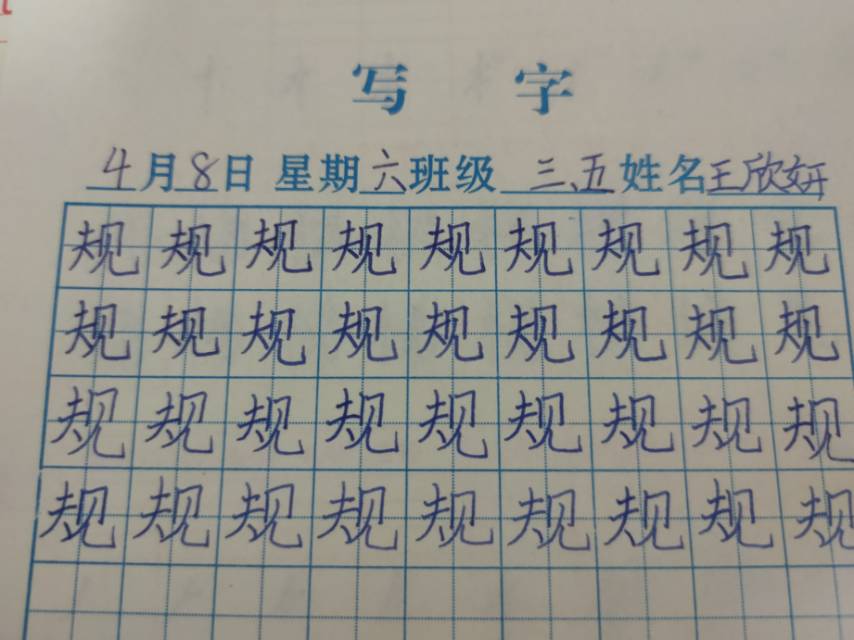 写字
4月8日 星期六班级 三、五姓名王欣妍
规规规规规规规规规
规规规规规规规规规
规规规规规规规规规
规规规规规规规规规